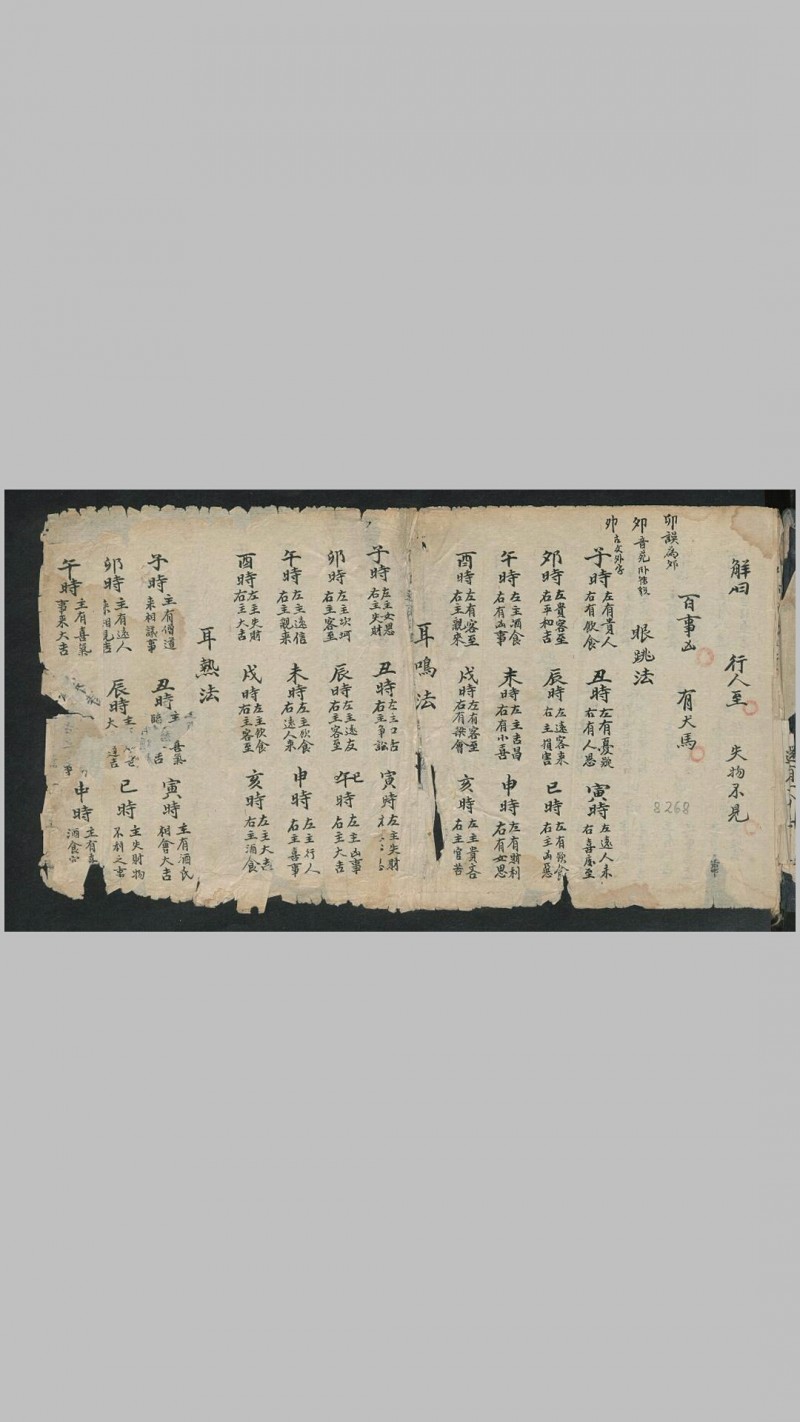 解曰 行人至 失物不見
百事凶 有犬馬
卯誤為夘
夘音
眼跳法
子時 左有貴人 右有飲食 丑時 左有憂疑 右有人思 寅時 左遠人来 右喜慶至
夘時 左貴客至 右平和吉 辰時 左遠客来 右主損害 巳時 左有飲食 右主凶惡
午時 左主酒食 右有凶事 未時 左主吉昌 右有小喜 申時 左有財利 右有女思
酉時 左有客至 右主親來 戌時 左有客至 右有聚會 亥時 左主貴客 右主官
耳鳴法
子時 左主女思 右主失財 丑時 左主口舌 右主爭訟 寅時 左主失財
卯時 左主坎坷 右主客至 辰時 左主遠友 右主客至 巳時 左主凶事 右主大吉
午時 左主遠信 右主親來 未時 左主飲食 右遠人來 申時 左主行人 右主喜事
酉時 左主失財 右主大吉 戌時 左主飲食 右主客至 亥時 左主大吉 右主酒食
耳熱法
子時 主有僧道 来相議事 丑時 主 喜氣 吉 寅時 主有酒 相會大吉
卯時 主有遠人 来相見吉 辰時 主 大 吉 巳時 主失財物 不利之
午時 主有喜氣 事來大吉
申時 主有喜 酒食
8268